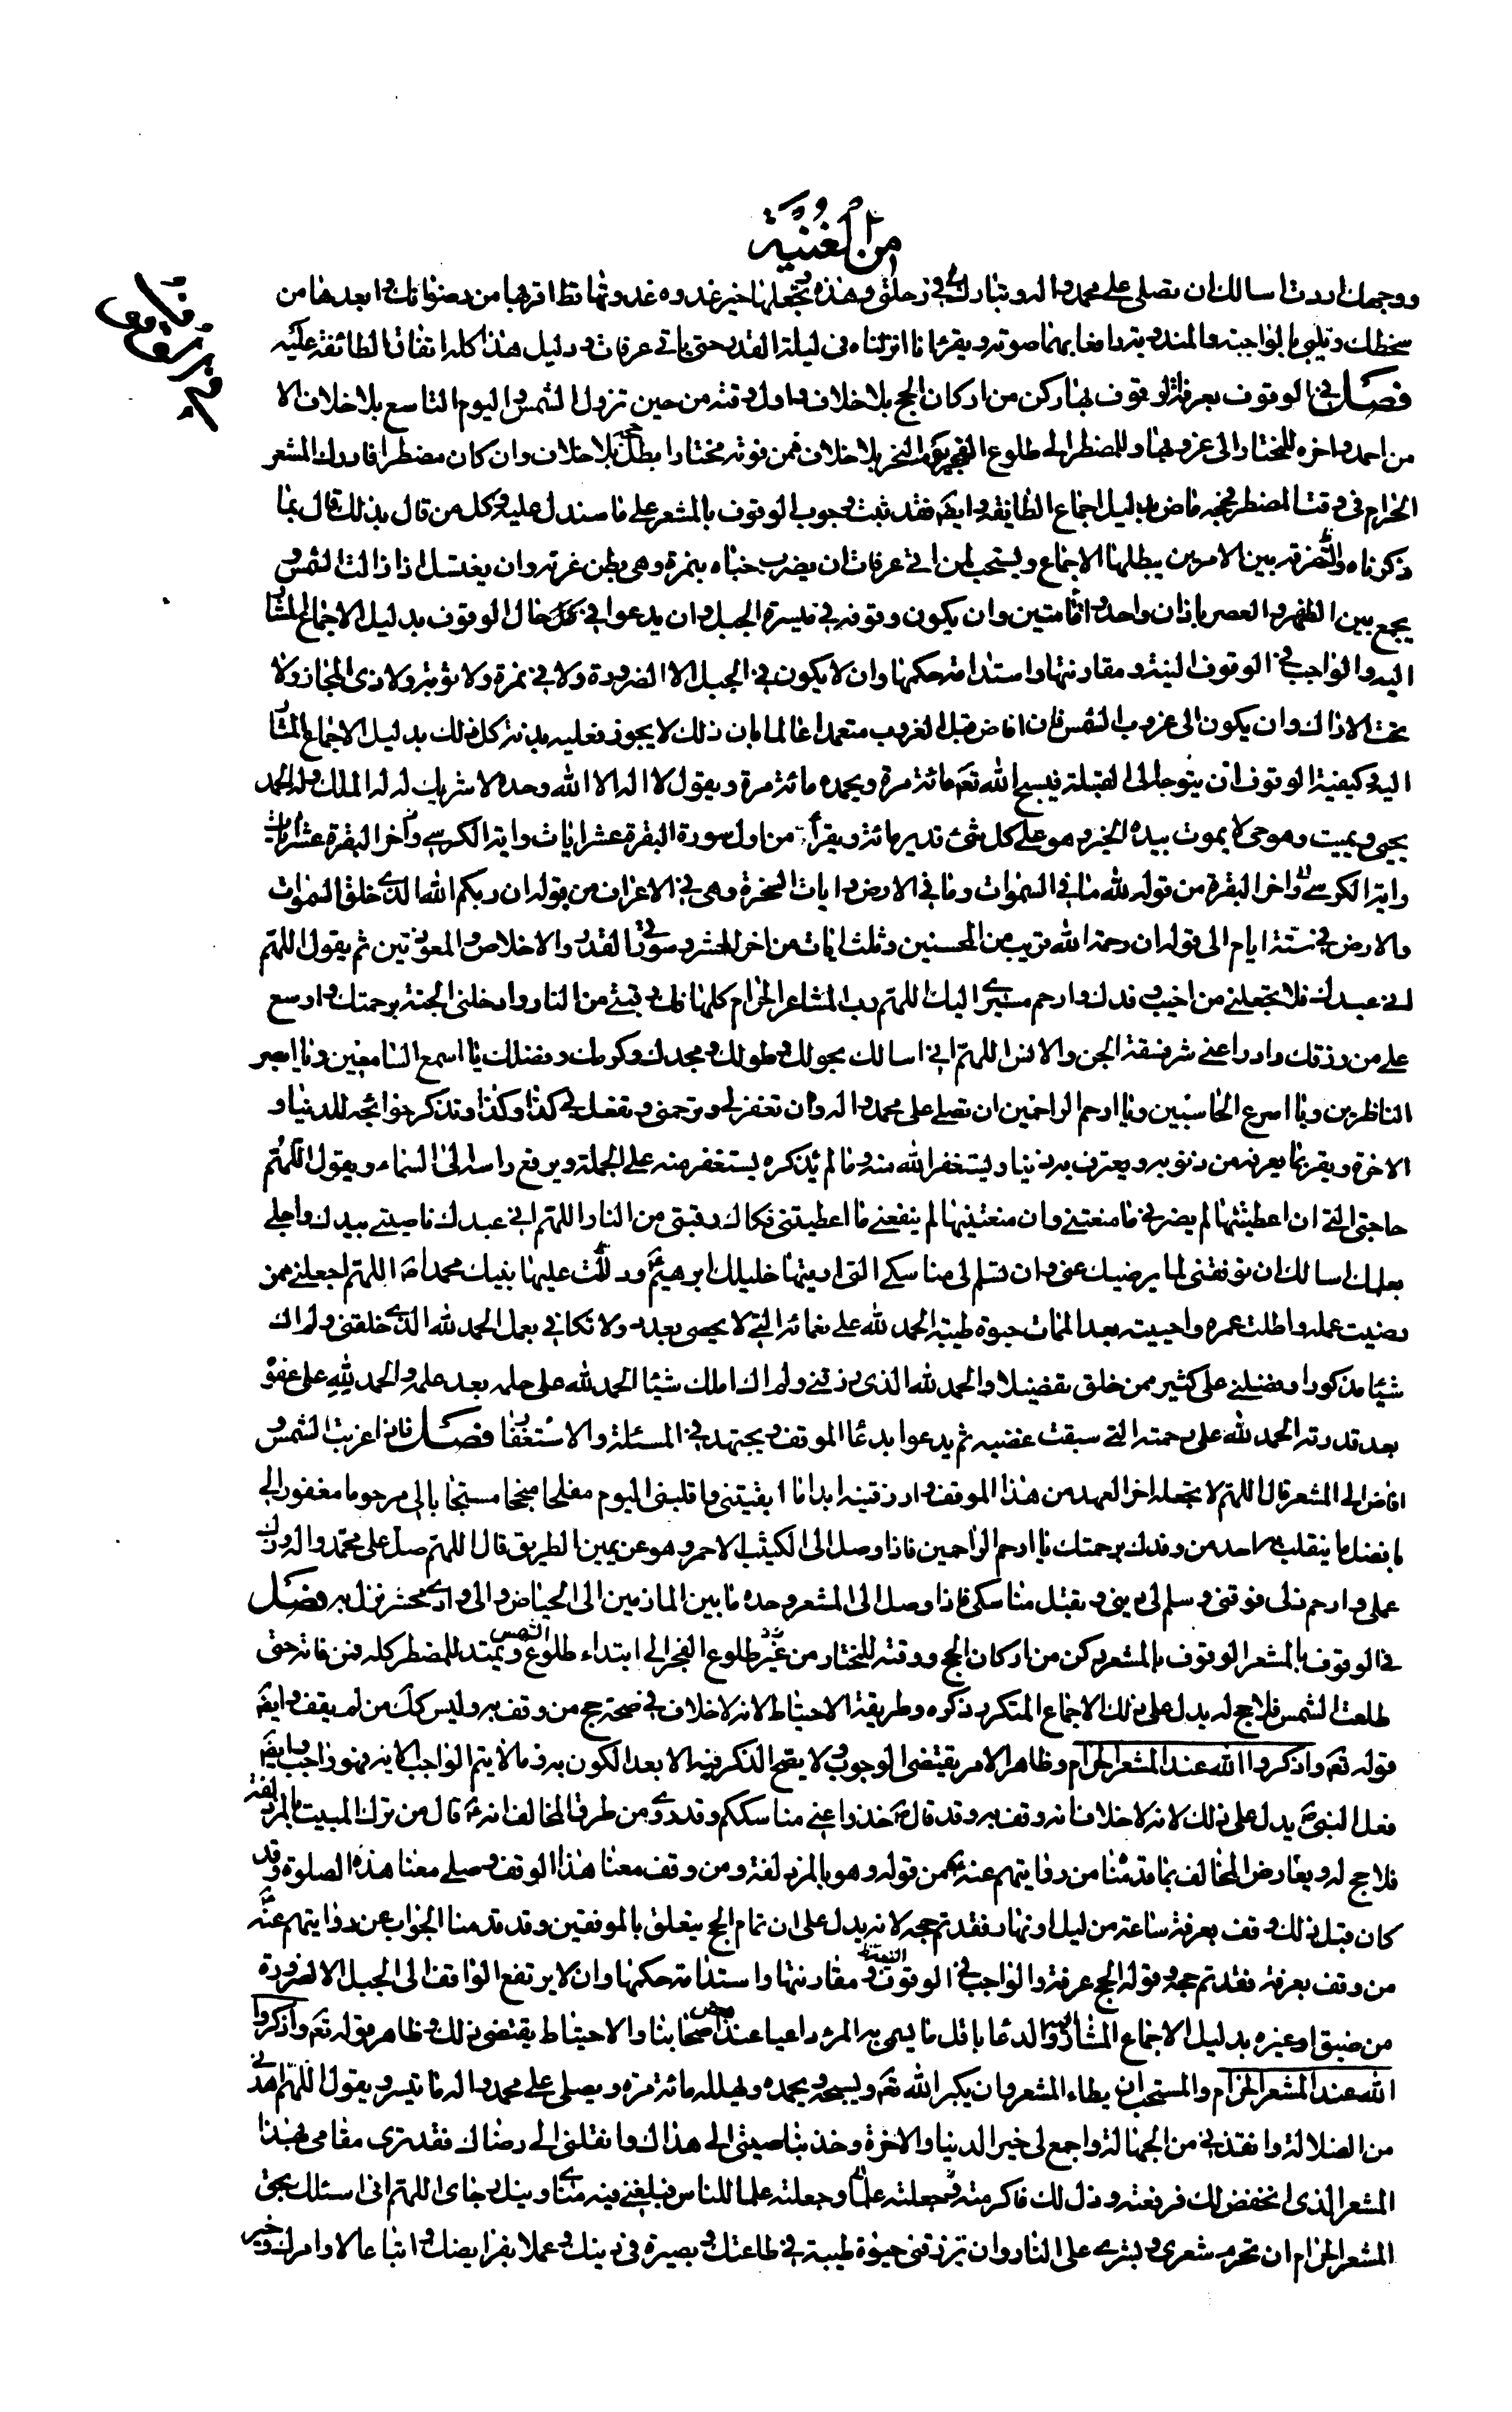 من الغنية
ووجهك اردت اسالك ان تصلى على محمد واله وتبارك لى فى رحلتى هذه وتجعلها خير غدوة غدوتها قط اقربها من رضوانك وابعدها من
سخطك ويلبى بالواجبة والمندوبة رافعا بهما صوته ويقرء انا انزلناه فى ليلة القدر حتى ياتى عرفات ودليل هذا كله اتفاق الطائفة عليه
فصل فى الوقوف بعرفة الوقوف بها ركن من اركان الحج بلا خلاف واول وقته من حين تزول الشمس فى اليوم التاسع بلا خلاف الا
من احمد واخره للمختار الى غروبها وللمضطر الى طلوع الفجر يوم النحر بلا خلاف فمن فوته مختارا بطل حجه بلا خلاف وان كان مضطرا فادرك المشعر
الحرام فى وقت المضطر فحجه ماض بدليل اجماع الطايفة وايضا فقد ثبت وجوب الوقوف بالمشعر على ما سندل عليه وكل من قال بذلك قال بما
ذكرناه والتفرقة بين الامرين يبطلها الاجماع ويستحب لمن اتى عرفات ان يضرب خباه بنمرة وهى بطن عرنة وان يغتسل اذا زالت الشمس و
يجمع بين الظهر والعصر باذان واحد واقامتين وان يكون وقوفه فى ميسرة الجبل وان يدعوا فى حال الوقوف بدليل الاجماع المشار
اليه والواجب فى الوقوف النية ومقارنتها واستدامة حكمها وان لا يكون فى الجبل الا لضرورة ولا فى نمرة ولا ثوية ولا ذى المجاز ولا
تحت الاراك وان يكون الى غروب الشمس فان افاض قبل الغروب متعمدا عالما بان ذلك لا يجوز فعليه بدنة كل ذلك بدليل الاجماع المشار
اليه وكيفية الوقوف ان يتوجه الى القبلة فيسبح الله تعه مائة مرة ويحمده مائة مرة ويقول لا اله الا الله وحده لا شريك له له الملك وله الحمد
يحيى ويميت وهو حى لا يموت بيده الخير وهو على كل شئ قدير مائة ويقرأ من اول سورة البقرة عشر ايات واية الكرسى واخر البقرة عشر ايات
واية الكرسى واخر البقرة من قوله لله ما فى السموات وما فى الارض وايات السخرة وهى فى الاعراف من قوله ان ربكم الله الذى خلق السموات
والارض فى ستة ايام الى قوله ان رحمة الله قريب من المحسنين وثلث ايات من اخر الحشر وسورة القدر والاخلاص والمعوذتين ثم يقول اللهم
انى عبدك فلا تجعلنى من اخيب وفدك وارحم مسيرى اليك اللهم رب المشاعر الحرام كلها فك رقبتى من النار وادخلنى الجنة برحمتك واوسع
على من رزقك وادراعنى شر فسقة الجن والانس اللهم انى اسالك بحولك وطولك ومجدك وكرمك وفضلك يا اسمع السامعين ويا ابصر
الناظرين ويا اسرع الحاسبين ويا ارحم الراحمين ان تصلى على محمد واله وان تغفر لى وترحمنى وتفعل بى كذا وكذا وتذكر حوائجه للدنيا و
الاخرة ويقر بما يعرفه من ذنوبه ويعترف به ذنبا ويستغفر الله منه وما لم يذكره يستغفر منه على الجملة ويرفع راسه الى السماء ويقول اللهم
حاجتى التى ان اعطيتنيها لم يضرنى ما منعتنى وان منعتنيها لم ينفعنى ما اعطيتنى فكاك رقبتى من النار اللهم انى عبدك ناصيتى بيدك واجلى
بعلمك اسالك ان توفقنى لما يرضيك عنى وان تسلم لى مناسكى التى اريتها خليلك ابرهيم ودللت عليها نبيك محمدا ص اللهم اجعلنى ممن
رضيت عمله واطلت عمره واحييته بعد الممات حيوة طيبة الحمد لله على نعمائه التى لا يحصى بعدد ولا تكافى بعمل الحمد لله الذى خلقنى ولم اك
شيئا مذكورا وفضلنى على كثير ممن خلق تفضيلا والحمد لله الذى رزقنى ولم اك املك شيئا الحمد لله على حلمه بعد علمه والحمد لله على عفوه
بعد قدرته الحمد لله على رحمته التى سبقت غضبه ثم يدعوا بدعا الموقف ويجتهد فى المسئلة والاستغفار فصل فاذا غربت الشمس و
افاض الى المشعر قال اللهم لا تجعله اخر العهد من هذا الموقف وارزقنيه ابدا ما ابقيتنى واقلبنى اليوم مفلحا منجحا مستجابا لى مرحوما مغفورا لى
بافضل ما ينقلب به احد من وفدك برحمتك يا ارحم الراحمين فاذا وصل الى الكثيب الاحمر وهو عن يمين الطريق قال اللهم صل على محمد واله وزك
عملى وارحم ذلى فوقنى وسلم لى دينى وتقبل مناسكى فاذا وصل الى المشعر وحده ما بين المازمين الى الحياض والى وادى محسر نزل به فصل
فى الوقوف بالمشعر الوقوف بالمشعر ركن من اركان الحج ووقته للمختار من طلوع الفجر الى ابتداء طلوع الشمس ويمتد للمضطر كله فمن فاته حتى
طلعت الشمس فلا حج له يدل على ذلك الاجماع المتكرر ذكره وطريقة الاحتياط لانه لا خلاف فى صحة حج من وقف به وليس كك من لم يقف وايضا
قوله تعه واذكروا الله عند المشعر الحرام وظاهر الامر يقتضى الوجوب ولا يصح الذكر فيه الا بعد الكون به وما لا يتم الواجب الا به فهو واجب وايضا
فعل النبى ص يدل على ذلك لانه لا خلاف انه وقف به وقد قال ص خذوا عنى مناسككم وقد روى من طرق المخالف انه ع قال من ترك المبيت بالمزدلفة
فلا حج له ويعارض المخالف بما قدمنا من روايتهم عنه ع من قوله وهو بالمزدلفة ومن وقف معنا هذا الوقف وصلى معنا هذه الصلوة وقد
كان قبل ذلك وقف بعرفة ساعة من ليل او نهار فقد تم حجه لانه يدل على ان تمام الحج يتعلق بالموقفين وقد قدمنا الجواب عن روايتهم عنه ع
من وقف بعرفة فقد تم حجه وقوله الحج عرفة والواجب فى الوقوف النية ومقارنتها واستدامة حكمها وان لا يرتفع الواقف الى الجبل الا لضرورة
من ضيق او غيره بدليل الاجماع المشار اليه والدعا باقل ما يسمى به المرء داعيا عند بعض اصحابنا والاحتياط يقتضى ذلك وظاهر قوله تعه واذكروا
الله عند المشعر الحرام والمستحب ان يطاء المشعر وان يكبر الله تعه ويسبحه ويحمده ويهلله مائة مرة ويصلى على محمد واله ما تيسر ويقول اللهم اهدنى
من الضلالة وانقذنى من الجهالة واجمع لى خير الدنيا والاخرة وخذ بناصيتى الى هداك وانقلنى الى رضاك فقد ترى مقامى بهذا
المشعر الذى انخفض لك فرفعته وذل لك فاكرمته وجعلته علما للناس فبلغنى فيه مناى ونيل رجاى اللهم انى اسئلك بحق
المشعر الحرام ان تحرم شعرى وبشرى على النار وان ترزقنى حيوة طيبة فى طاعتك وبصيرة فى دينك وعملا بفرايضك واتباعا لاوامرك وخير